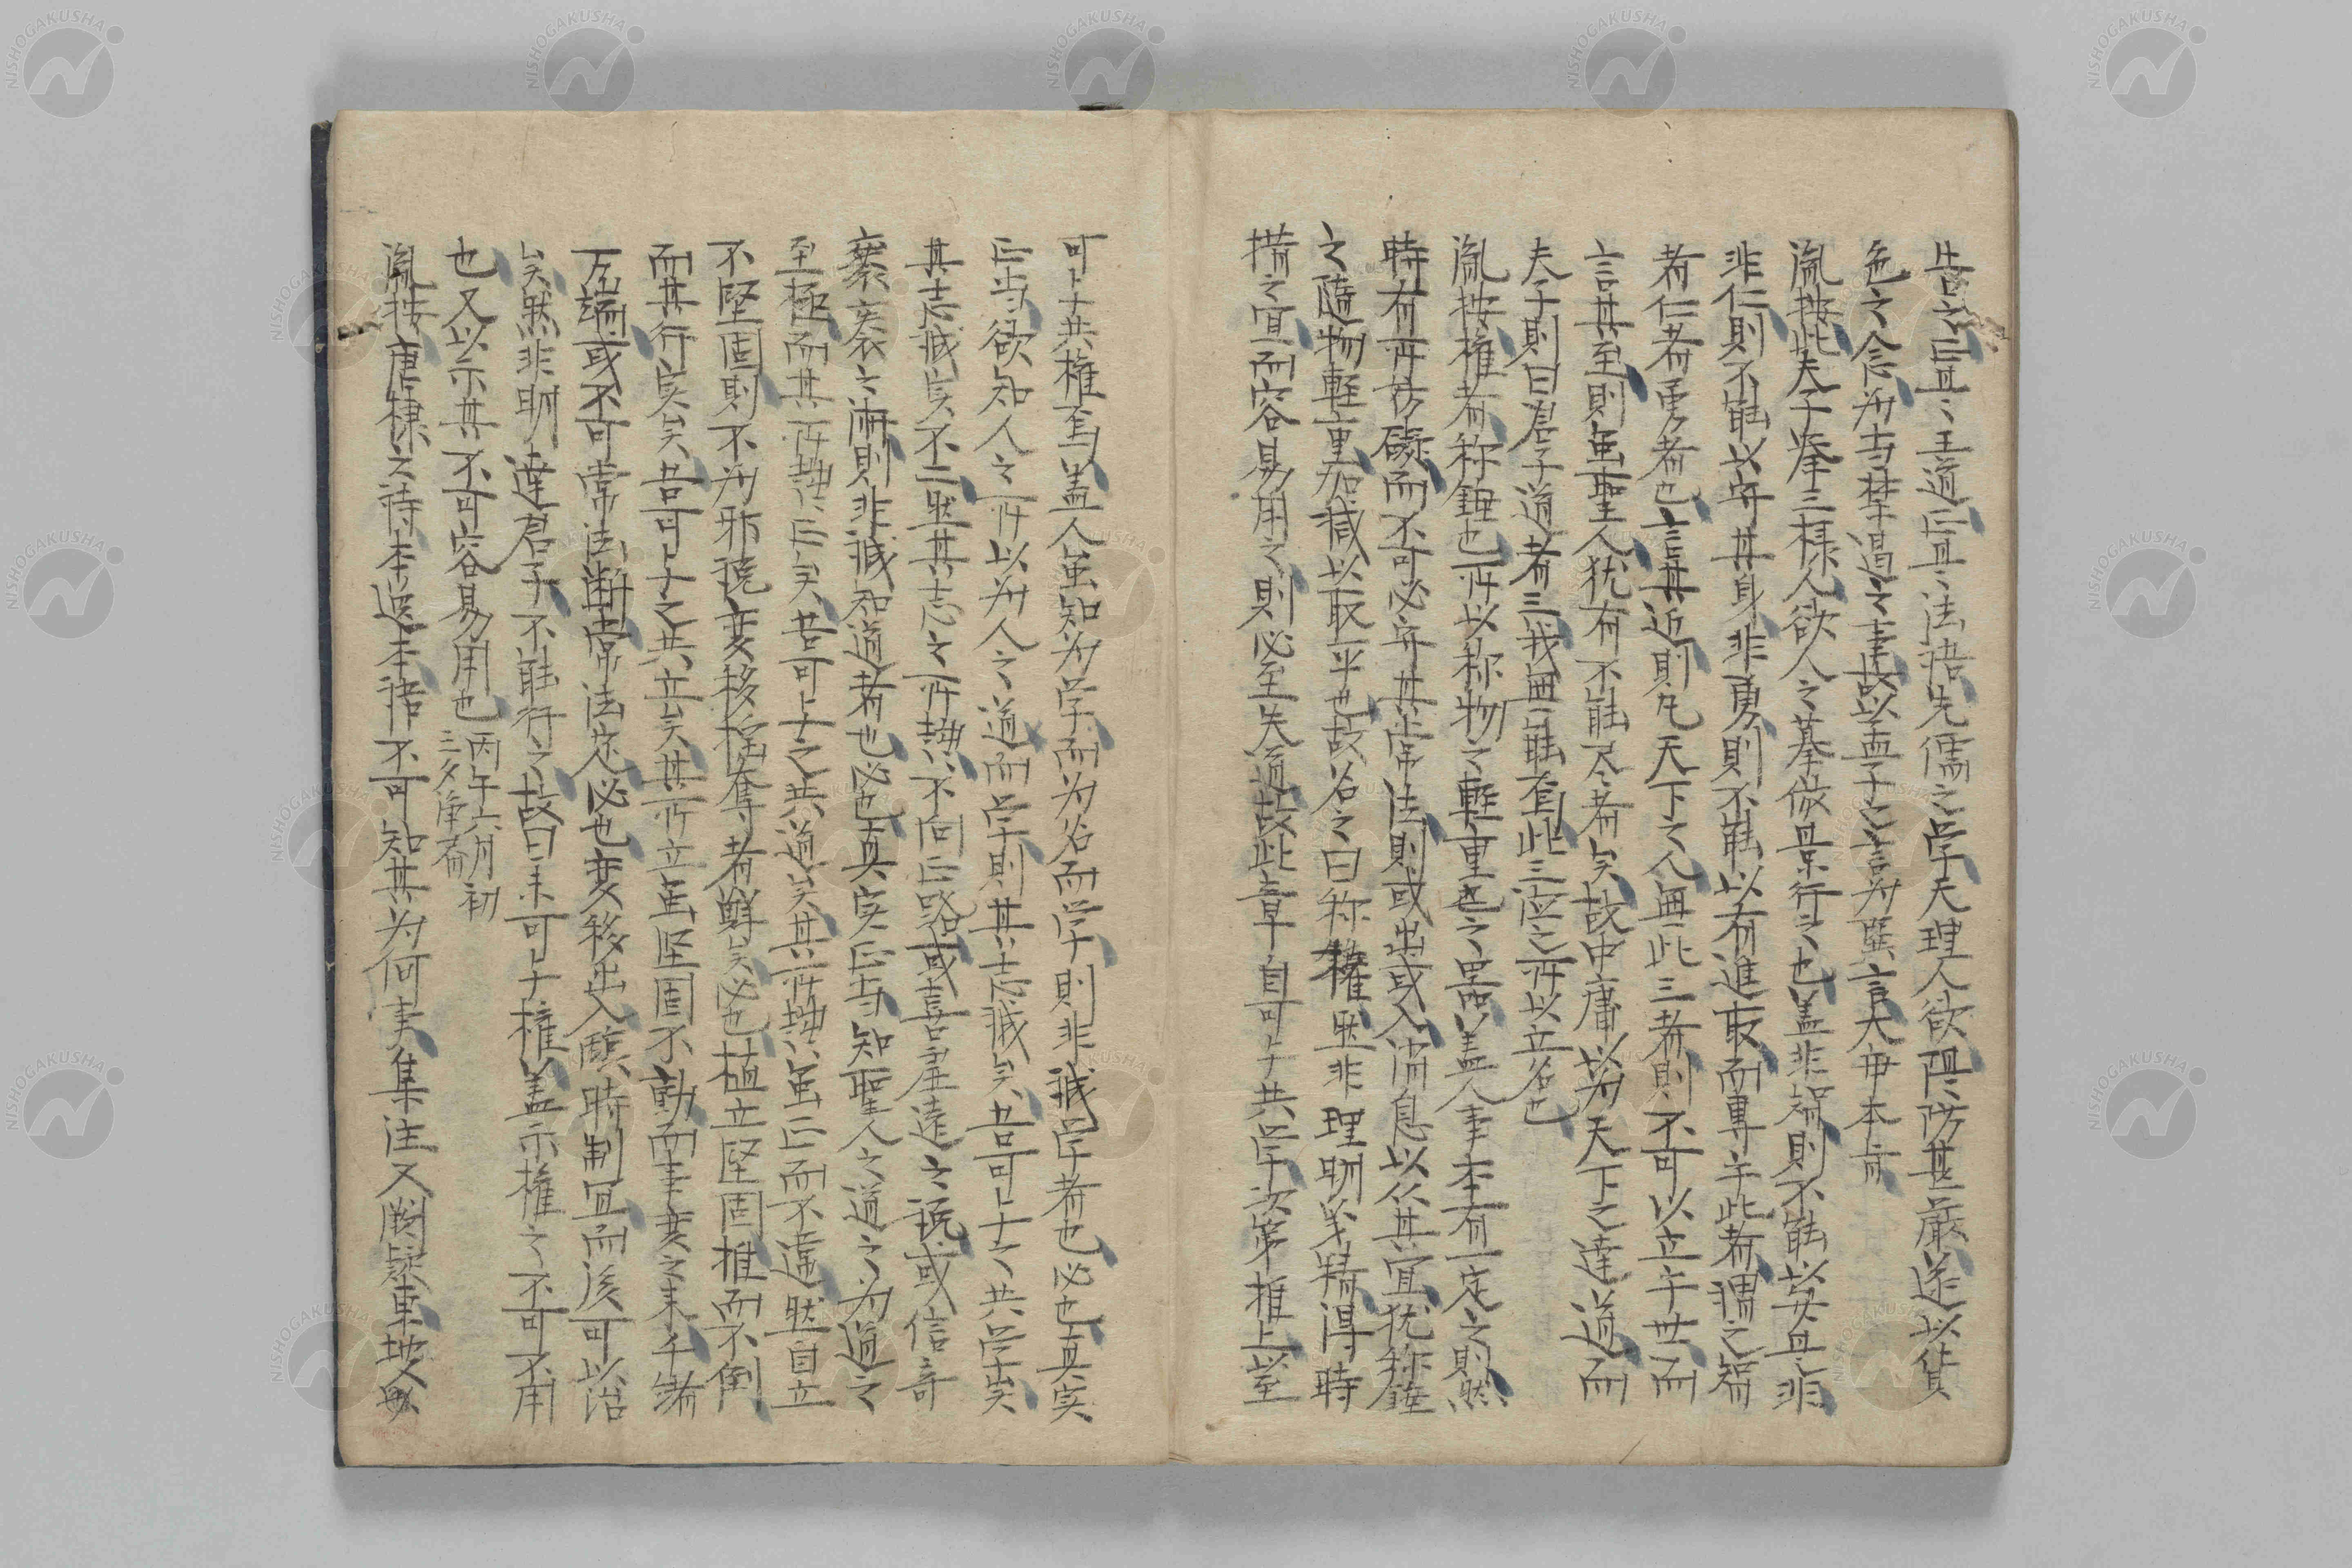 告之以直〻王道正直〻法語先儒之学天理人欲隄防甚厳遂以貨
色之念為当禁遏之事故以孟子之言為巽言大毋本旨
胤按此夫子挙三様人欲人之摹倣景行之也蓋非智則不能以安且非
非仁則不能以安其身非勇則不能以有進取而専乎此者謂之智
者仁者勇者也言其近則凡天下之人無此三者則不可以立乎世而
言其至則虽聖人犹有不能尽者矣故中庸以為天下之達道而
夫子則曰君子道者三我無能焉此三德之所以立名也
胤按権者称錘也所以称物之軽重也之器蓋人事本有一定之則然
時有所妨礙而不可必守其常法則或出或入消息以従其宜犹称錘
之随物軽重加减以取平也故名之曰称権然非理明義精得時
措之宜而容易用之則必至失道故此章自可与共学次第推上至
可与共権焉蓋人虽知为学而为名而学則非誠学者也必也真実
正当欲知人之所以为人之道而学則其志誠矣吾可与之共学矣
其志誠実不二然其志之所執不向正路或喜虚遠之説或信奇
衺之術則非誠知道者也必也真実正当知聖人之道之为道之
至極而其所執正矣吾可与之共道矣其所執虽正而不違然自立
不堅固則不为邪説変移揺奪者鮮矣必也植立堅固推而不倒
而其行実矣吾可与之共立矣其所立虽堅固不動而事変之来千端
万緒或不可常法断常法応必也変移出入隨時制宜而後可以治
矣然非明達君子不能行之故曰未可与権蓋示権之不可不用
也又以示其不可容易用也 丙午六月初
三夕浄斎
胤按唐棣之詩本逸本語不可知其为何事集注又闕疑東坡又與